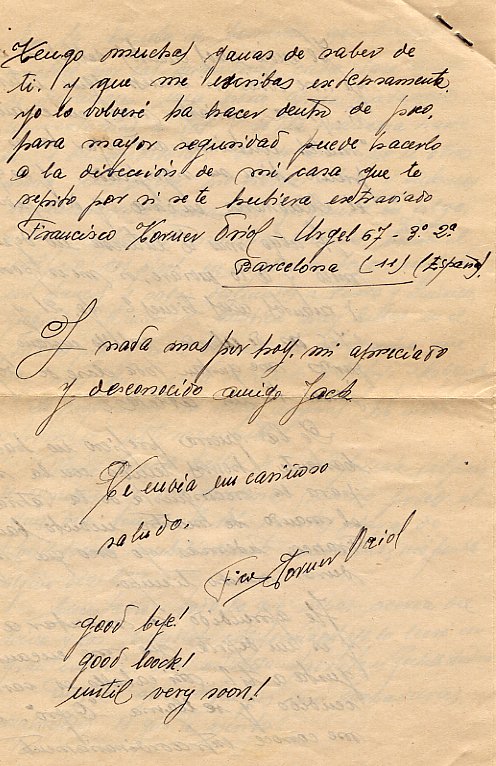 Tengo muchas ganas de saber de
ti. y que me escribas extensamente.
yo lo volveré ha hacer dentro de poco,
para mayor seguridad puede hacerlo
a la dirección de mi casa que te
repito por si se te hubiera extraviado
Francisco Torner Oriol - Urgel 67 - 3º. 2ª
Barcelona (11) (España).
Y nada mas por hoy, mi apreciado
y desconocido amigo Jack
Te envía un cariñoso
saludo.
Fco Torner Oriol
good bye!
good loock!
until very soon!